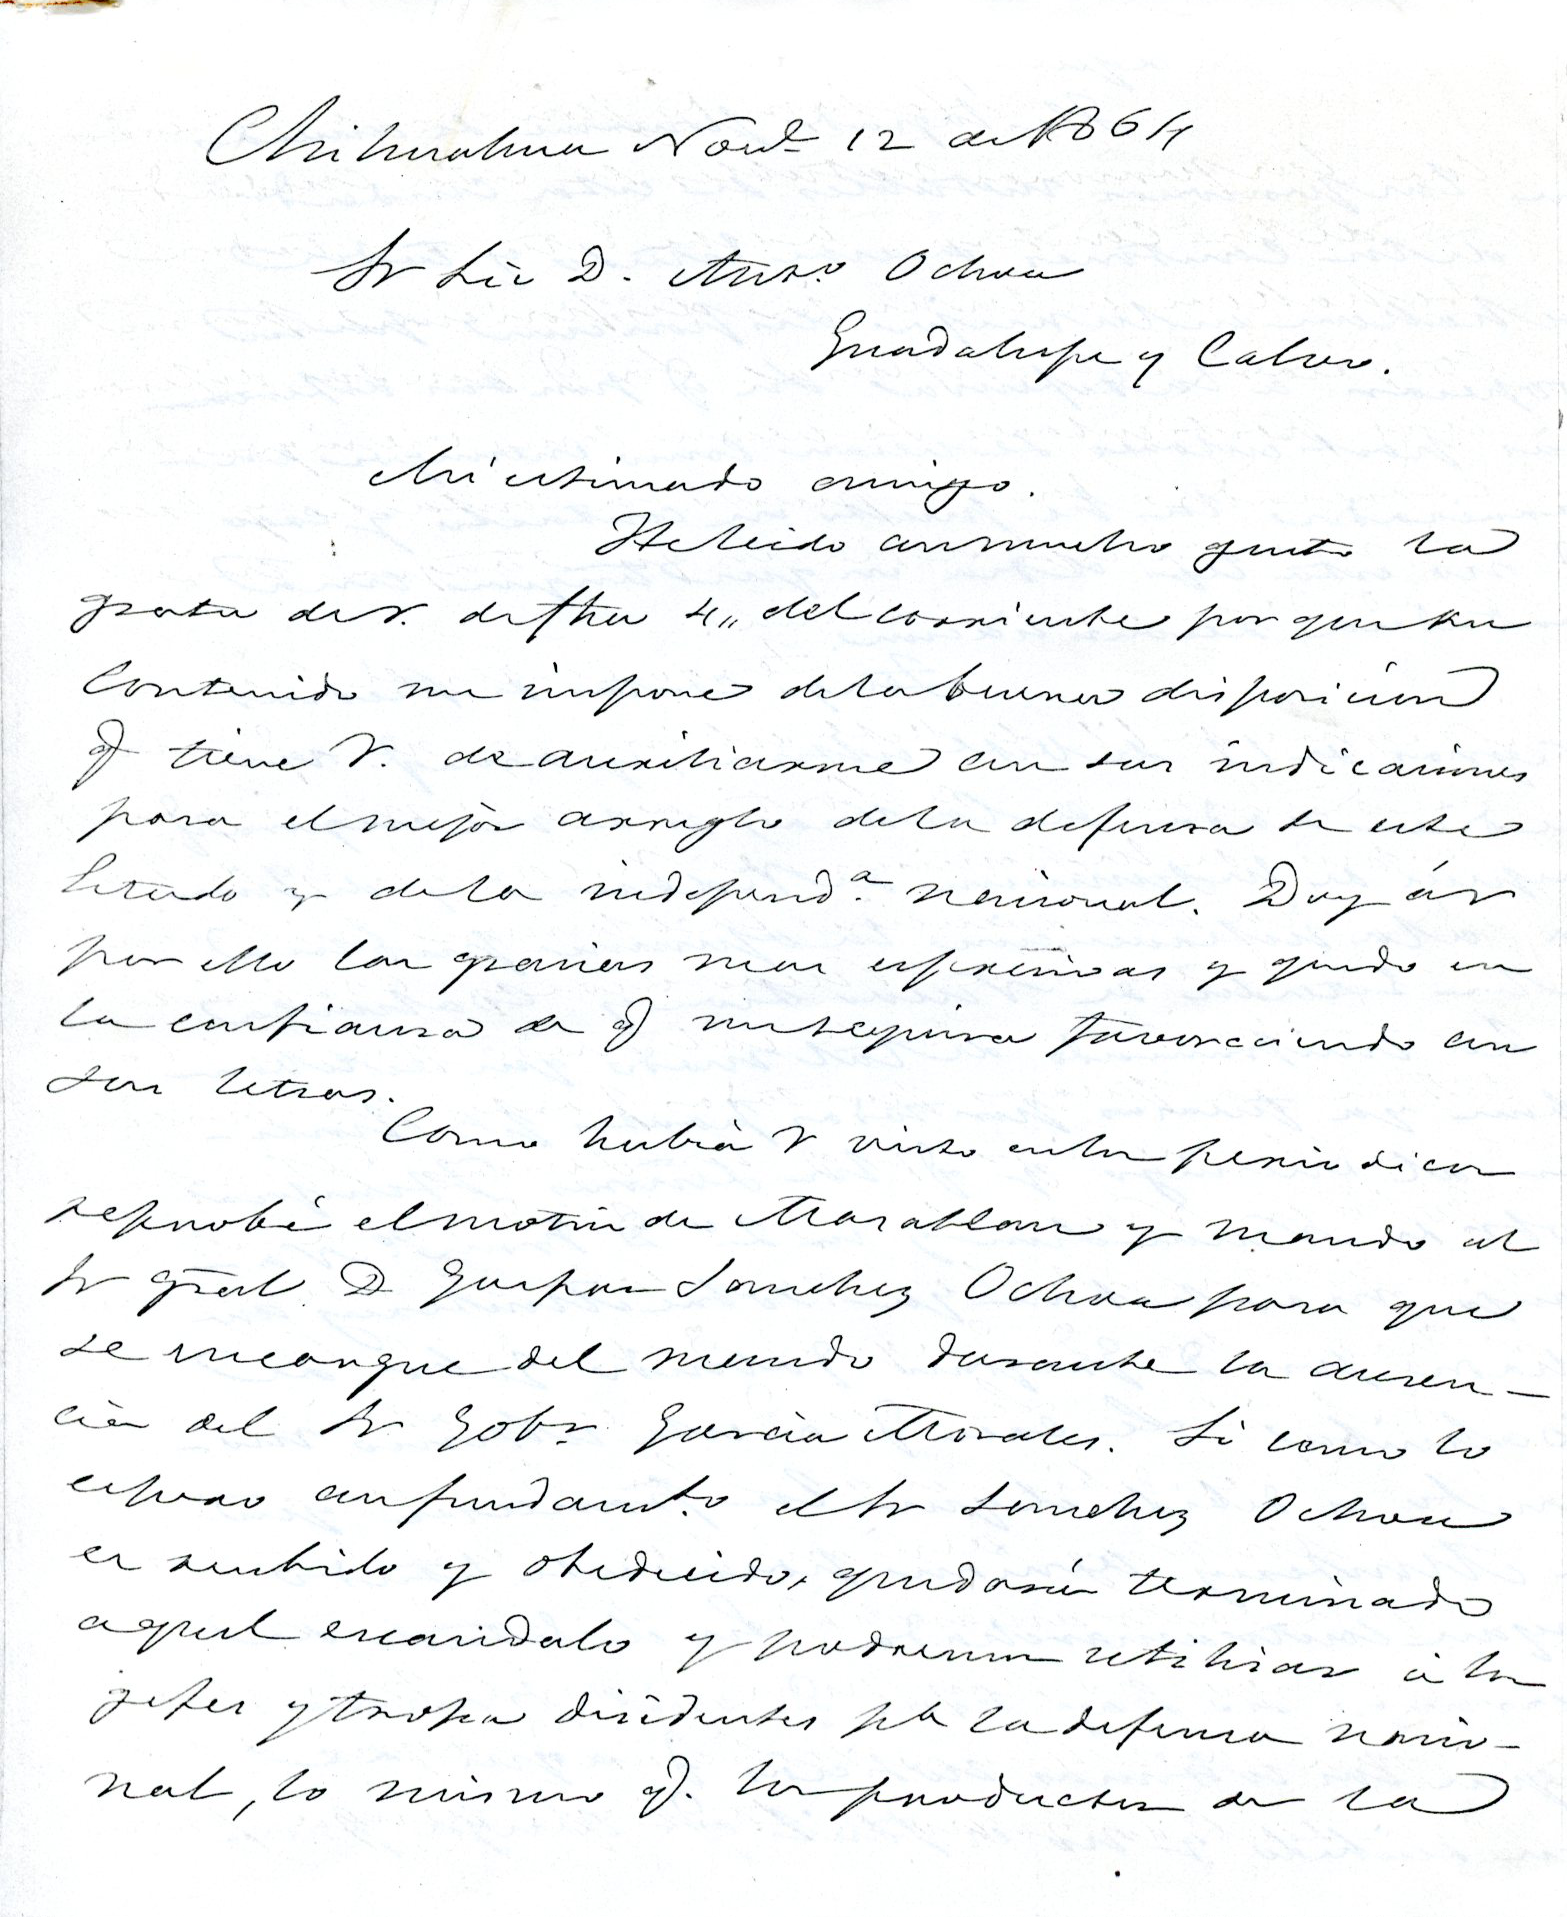 Chihuahua Nove. 12 de 1864
Sr Lic D. Anto. Ochoa
Guadalupe y Calvo.
Mi estimado amigo.
He leido con mucho gusto la
grata de V. de fha 4,, del corriente por que su
contenido me impone de la buena disposicion
q tiene V. de auxiliarme con sus indicaciones
para el mejor arreglo de la defensa de este
Estado y de la independ.a nacional. Doy á V
por ello las gracias mas espresivas y quedo en
la confianza de q me seguira favoreciendo con
sus letras.
Como habrá V visto en los periodicos
reprobé el motin de Mazatlan y mando al
Sr gral. D Gaspar Sanchez Ochoa para que
se encargue del mando durante la ausen-
cia del Sr Gobr. Garcia Morales. Si como lo
espero con fundamto. el Sr Sanchez Ochoa
es recibido y obedecido, quedará terminado
aquel escandalo y podremos utilizar á los
gefes y tropa disidentes pa la defensa nacio-
nal, lo mismo q. los productos de la